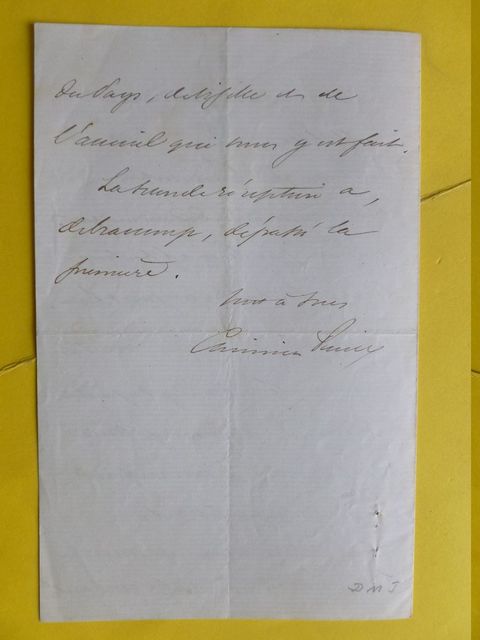 du Pays, de
l'accueil qui vous y est fait.
La seconde réception a,
de beaucoup, dépassé la
première.
tout à vous
Casimir Perier
D M J